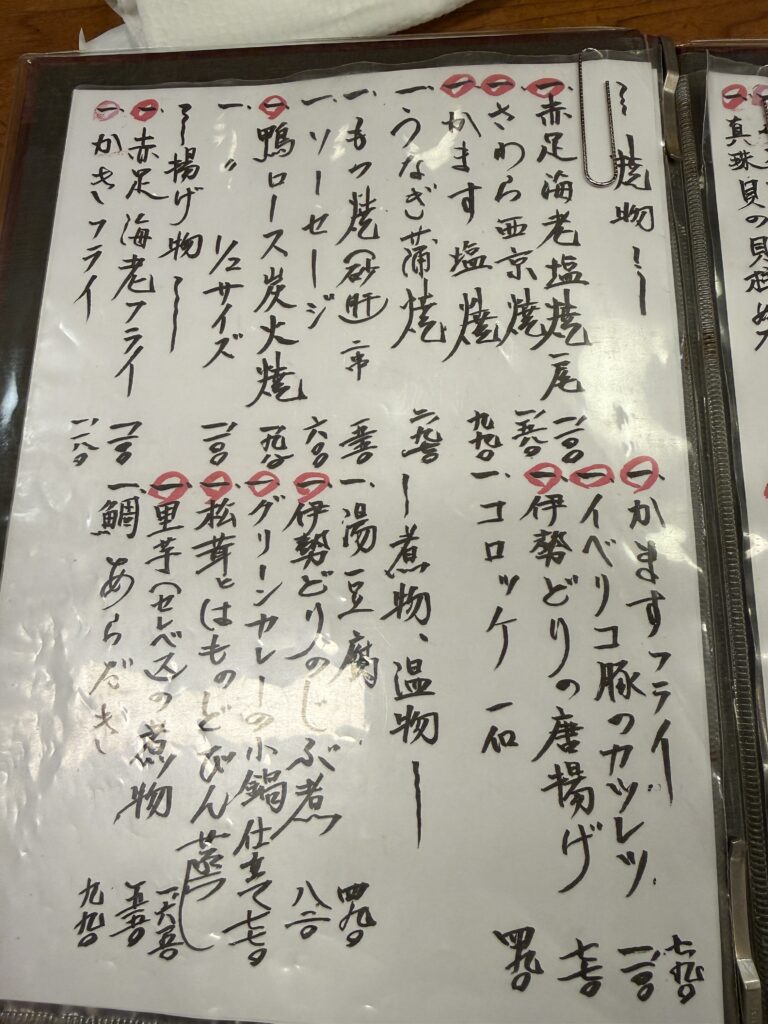 〜焼物〜
一、赤足海老塩焼一尾 一、一〇〇
一、さわら西京焼 一、五八〇
一、かます塩焼 九九〇
一、うなぎ蒲焼 二、九七〇
一、もつ焼(砂肝)二串
一、ソーセージ 六〇〇
一、鴨ロース炭火焼
一、〃 1/2サイズ 一、一〇〇
〜揚げ物〜
一、赤足海老フライ 一、一〇〇
一、かきフライ 一、一八〇
一、かますフライ 七九〇
一、イベリコ豚のカツレツ 一、一〇〇
一、伊勢どりの唐揚げ 七七〇
一、コロッケ 一和 四九〇
ー煮物、温物ー
一、湯豆腐 四九〇
一、伊勢どりのじぶ煮 八八〇
一、グリーンカレーの小鍋仕立て 七七〇
一、松茸とはものどびん蒸し 一、六五〇
一、里芋(セレベス)の煮物 五五〇
一、鯛あらだき 九九〇
一、真珠貝の貝柱